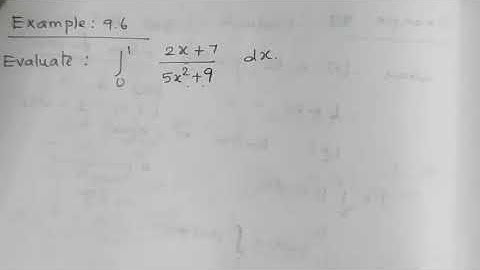 Example: 9.6
Evaluate: ∫₀¹ (2x+7)/(5x²+9) dx.